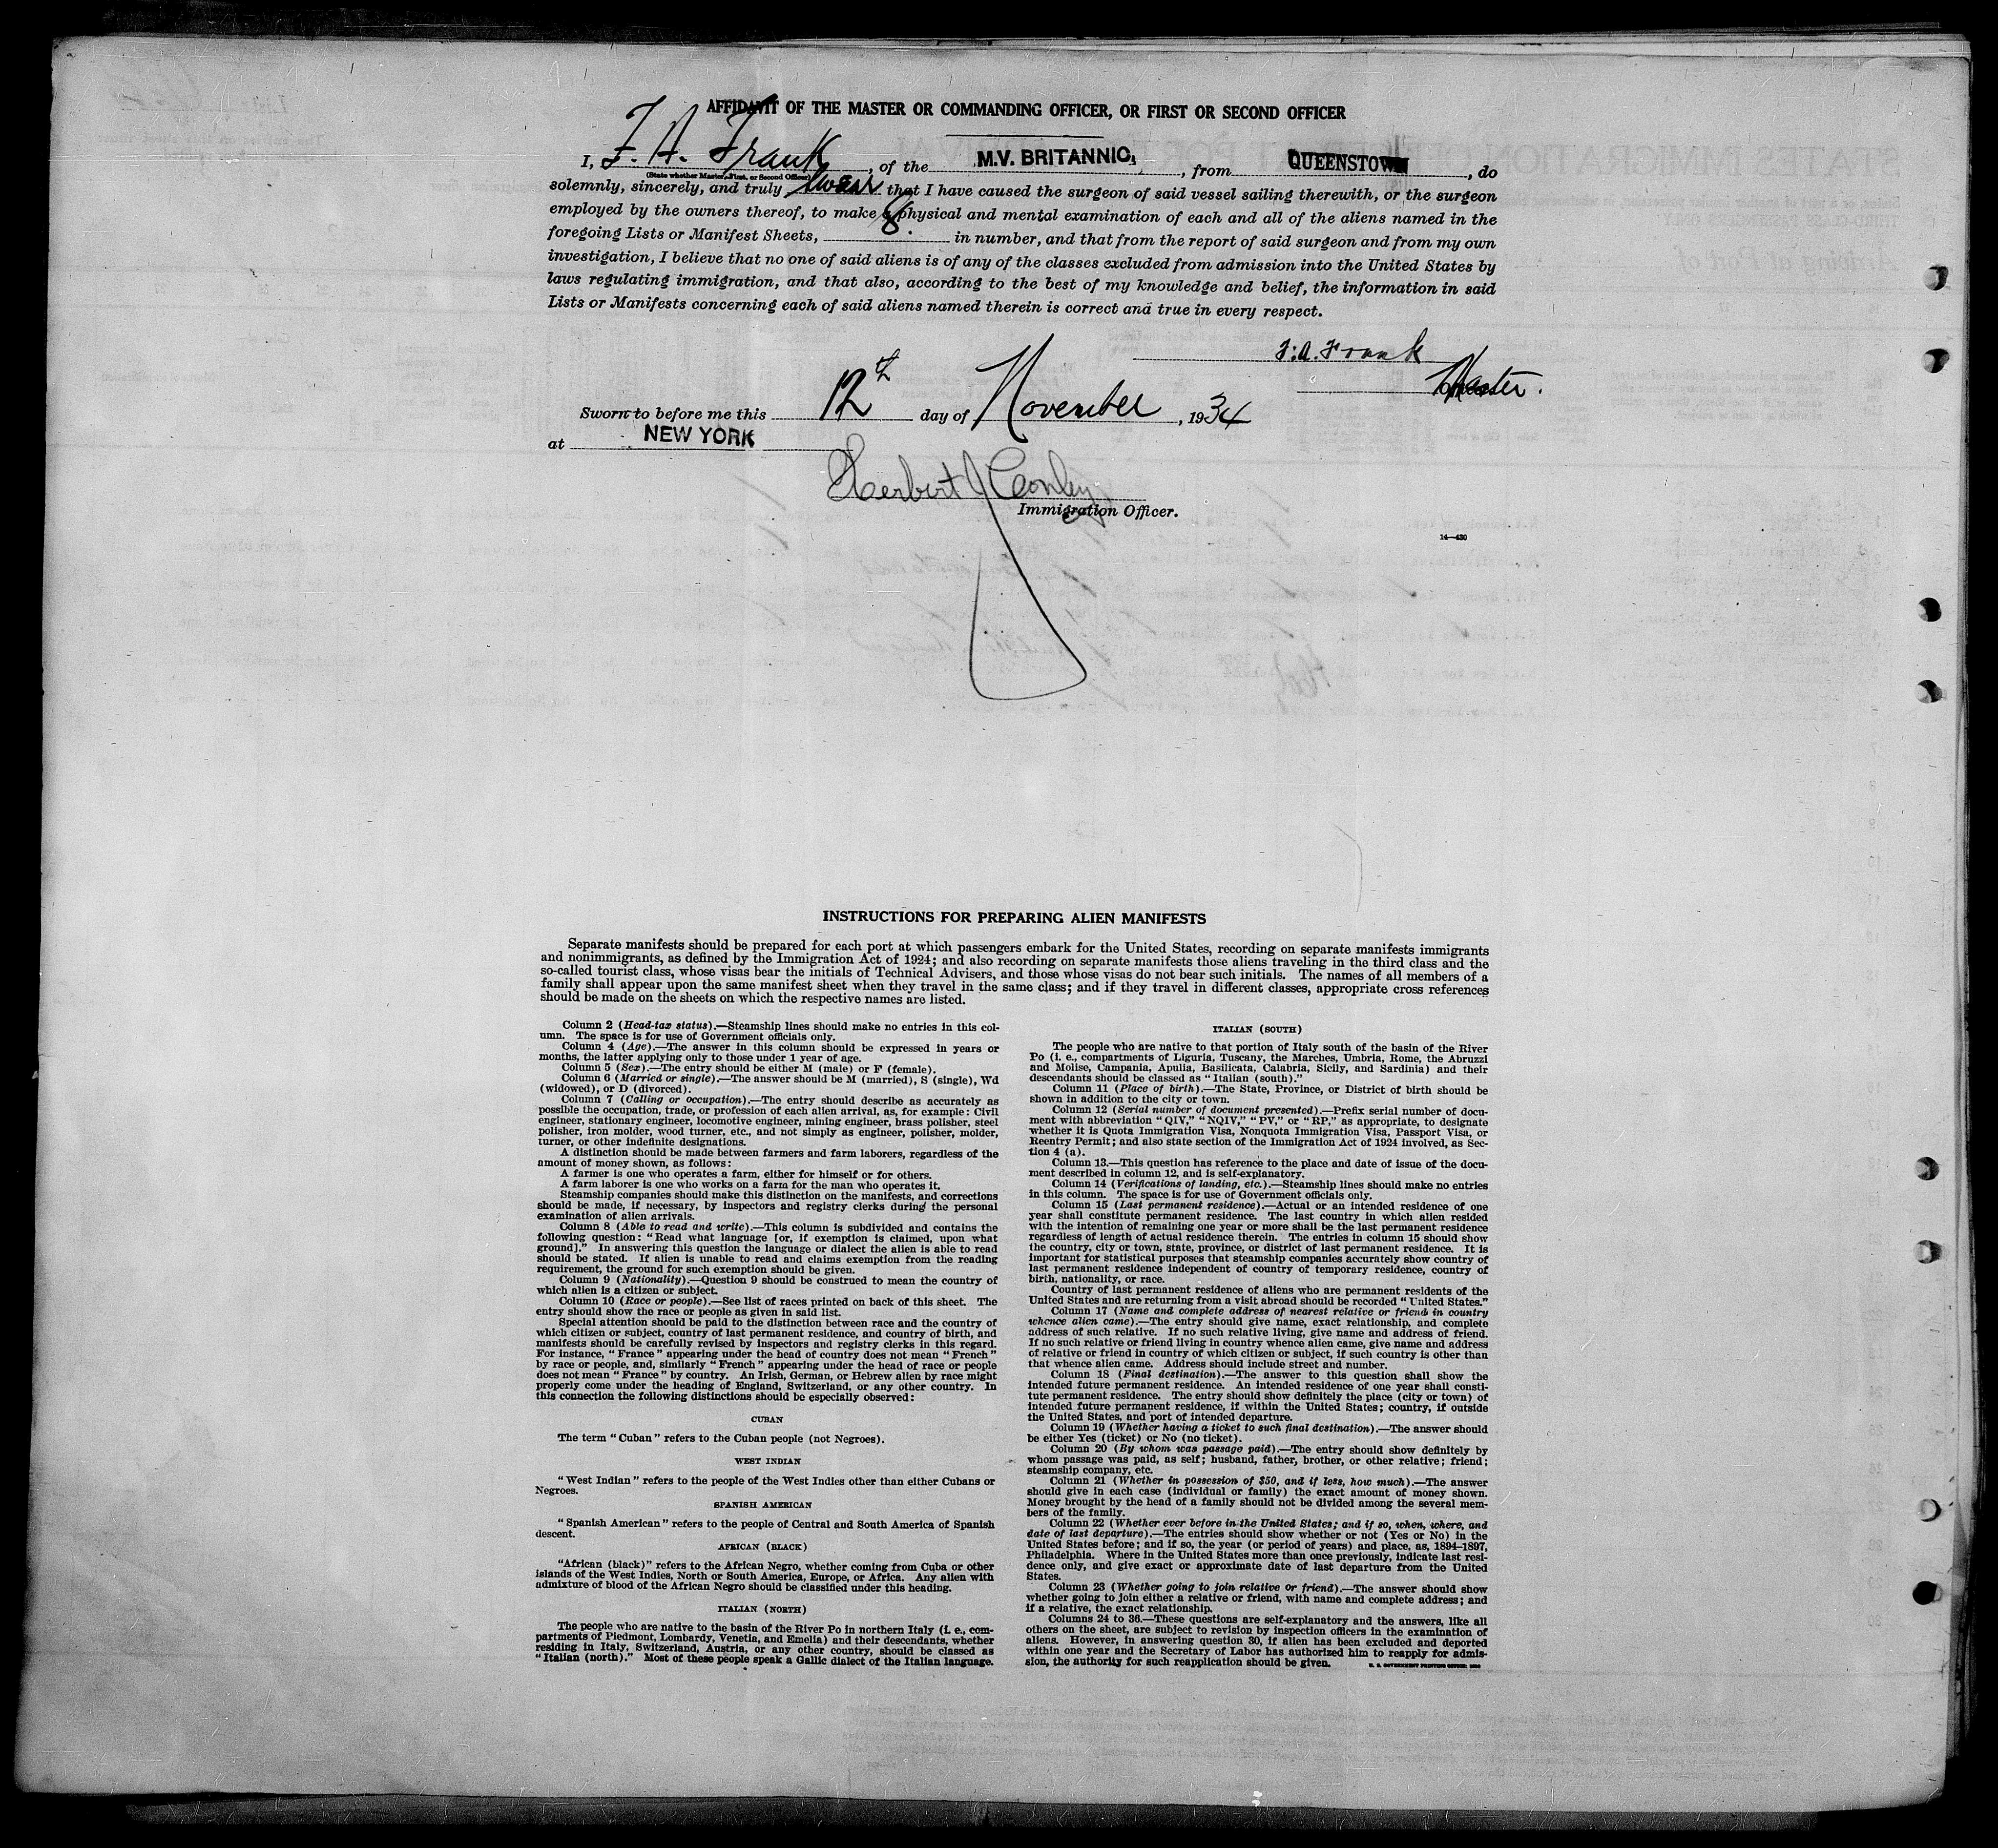 AFFIDAVIT OF THE MASTER OR COMMANDING OFFICER, OR FIRST OR SECOND OFFICER
I, F. A. Frank, of the M.V. BRITANNIC, from QUEENSTOWN, do
(State whether Master, First, or Second Officer)
solemnly, sincerely, and truly swear that I have caused the surgeon of said vessel sailing therewith, or the surgeon
employed by the owners thereof, to make a physical and mental examination of each and all of the aliens named in the
foregoing Lists or Manifest Sheets, 8. in number, and that from the report of said surgeon and from my own
investigation, I believe that no one of said aliens is of any of the classes excluded from admission into the United States by
laws regulating immigration, and that also, according to the best of my knowledge and belief, the information in said
Lists or Manifests concerning each of said aliens named therein is correct and true in every respect.
F. A. Frank
Master.
Sworn to before me this 12th day of November, 1934
at NEW YORK
Herbert J Conley
Immigration Officer.
14—430
INSTRUCTIONS FOR PREPARING ALIEN MANIFESTS
Separate manifests should be prepared for each port at which passengers embark for the United States, recording on separate manifests immigrants
and nonimmigrants, as defined by the Immigration Act of 1924; and also recording on separate manifests those aliens traveling in the third class and the
so-called tourist class, whose visas bear the initials of Technical Advisers, and those whose visas do not bear such initials. The names of all members of a
family shall appear upon the same manifest sheet when they travel in the same class; and if they travel in different classes, appropriate cross references
should be made on the sheets on which the respective names are listed.
Column 2 (Head-tax status).—Steamship lines should make no entries in this col-
umn. The space is for use of Government officials only.
Column 4 (Age).—The answer in this column should be expressed in years or
months, the latter applying only to those under 1 year of age.
Column 5 (Sex).—The entry should be either M (male) or F (female).
Column 6 (Married or single).—The answer should be M (married), S (single), Wd
(widowed), or D (divorced).
Column 7 (Calling or occupation).—The entry should describe as accurately as
possible the occupation, trade, or profession of each alien arrival, as, for example: Civil
engineer, stationary engineer, locomotive engineer, mining engineer, brass polisher, steel
polisher, iron molder, wood turner, etc., and not simply as engineer, polisher, molder,
turner, or other indefinite designations.
A distinction should be made between farmers and farm laborers, regardless of the
amount of money shown, as follows:
A farmer is one who operates a farm, either for himself or for others.
A farm laborer is one who works on a farm for the man who operates it.
Steamship companies should make this distinction on the manifests, and corrections
should be made, if necessary, by inspectors and registry clerks during the personal
examination of alien arrivals.
Column 8 (Able to read and write).—This column is subdivided and contains the
following question: "Read what language [or, if exemption is claimed, upon what
ground]." In answering this question the language or dialect the alien is able to read
should be stated. If alien is unable to read and claims exemption from the reading
requirement, the ground for such exemption should be given.
Column 9 (Nationality).—Question 9 should be construed to mean the country of
which alien is a citizen or subject.
Column 10 (Race or people).—See list of races printed on back of this sheet. The
entry should show the race or people as given in said list.
Special attention should be paid to the distinction between race and the country of
which citizen or subject, country of last permanent residence, and country of birth, and
manifests should be carefully revised by inspectors and registry clerks in this regard.
For instance, "France" appearing under the head of country does not mean "French"
by race or people, and, similarly "French" appearing under the head of race or people
does not mean "France" by country. An Irish, German, or Hebrew alien by race might
properly come under the heading of England, Switzerland, or any other country. In
this connection the following distinctions should be especially observed:
CUBAN
The term "Cuban" refers to the Cuban people (not Negroes).
WEST INDIAN
"West Indian" refers to the people of the West Indies other than either Cubans or
Negroes.
SPANISH AMERICAN
"Spanish American" refers to the people of Central and South America of Spanish
descent.
AFRICAN (BLACK)
"African (black)" refers to the African Negro, whether coming from Cuba or other
islands of the West Indies, North or South America, Europe, or Africa. Any alien with
admixture of blood of the African Negro should be classified under this heading.
ITALIAN (NORTH)
The people who are native to the basin of the River Po in northern Italy (i. e., com-
partments of Piedmont, Lombardy, Venetia, and Emelia) and their descendants, whether
residing in Italy, Switzerland, Austria, or any other country, should be classed as
"Italian (north)." Most of these people speak a Gallic dialect of the Italian language.
ITALIAN (SOUTH)
The people who are native to that portion of Italy south of the basin of the River
Po (i. e., compartments of Liguria, Tuscany, the Marches, Umbria, Rome, the Abruzzi
and Molise, Campania, Apulia, Basilicata, Calabria, Sicily, and Sardinia) and their
descendants should be classed as "Italian (south)."
Column 11 (Place of birth).—The State, Province, or District of birth should be
shown in addition to the city or town.
Column 12 (Serial number of document presented).—Prefix serial number of docu-
ment with abbreviation "QIV," "NQIV," "PV," or "RP," as appropriate, to designate
whether it is Quota Immigration Visa, Nonquota Immigration Visa, Passport Visa, or
Reentry Permit; and also state section of the Immigration Act of 1924 involved, as Sec-
tion 4 (a).
Column 13.—This question has reference to the place and date of issue of the docu-
ment described in column 12, and is self-explanatory.
Column 14 (Verifications of landing, etc.).—Steamship lines should make no entries
in this column. The space is for use of Government officials only.
Column 15 (Last permanent residence).—Actual or an intended residence of one
year shall constitute permanent residence. The last country in which alien resided
with the intention of remaining one year or more shall be the last permanent residence
regardless of length of actual residence therein. The entries in column 15 should show
the country, city or town, state, province, or district of last permanent residence. It is
important for statistical purposes that steamship companies accurately show country of
last permanent residence independent of country of temporary residence, country of
birth, nationality, or race.
Country of last permanent residence of aliens who are permanent residents of the
United States and are returning from a visit abroad should be recorded "United States."
Column 17 (Name and complete address of nearest relative or friend in country
whence alien came).—The entry should give name, exact relationship, and complete
address of such relative. If no such relative living, give name and address of friend.
If no such relative or friend living in country whence alien came, give name and address
of relative or friend in country of which citizen or subject, if such country is other than
that whence alien came. Address should include street and number.
Column 18 (Final destination).—The answer to this question shall show the
intended future permanent residence. An intended residence of one year shall consti-
tute permanent residence. The entry should show definitely the place (city or town) of
intended future permanent residence, if within the United States; country, if outside
the United States, and port of intended departure.
Column 19 (Whether having a ticket to such final destination).—The answer should
be either Yes (ticket) or No (no ticket).
Column 20 (By whom was passage paid).—The entry should show definitely by
whom passage was paid, as self; husband, father, brother, or other relative; friend;
steamship company, etc.
Column 21 (Whether in possession of $50, and if less, how much).—The answer
should give in each case (individual or family) the exact amount of money shown.
Money brought by the head of a family should not be divided among the several mem-
bers of the family.
Column 22 (Whether ever before in the United States; and if so, when, where, and
date of last departure).—The entries should show whether or not (Yes or No) in the
United States before; and if so, the year (or period of years) and place, as, 1894–1897,
Philadelphia. Where in the United States more than once previously, indicate last resi-
dence only, and give exact or approximate date of last departure from the United
States.
Column 23 (Whether going to join relative or friend).—The answer should show
whether going to join either a relative or friend, with name and complete address; and
if a relative, the exact relationship.
Columns 24 to 36.—These questions are self-explanatory and the answers, like all
others on the sheet, are subject to revision by inspection officers in the examination of
aliens. However, in answering question 30, if alien has been excluded and deported
within one year and the Secretary of Labor has authorized him to reapply for admis-
sion, the authority for such reapplication should be given.
U. S. GOVERNMENT PRINTING OFFICE: